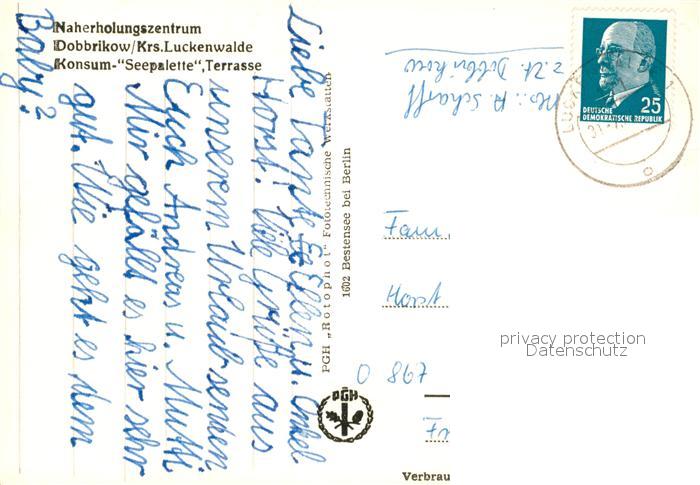 Naherholungszentrum
Dobbrikow/Krs.Luckenwalde
Konsum-"Seepalette",Terrasse
Liebe Tante Ellen u. Onkel
Horst! Viele Grüße aus
unserem Urlaub senden
Euch Andreas u. Mutti
Mir gefällt es hier sehr
gut. Wie geht es dem
Baby?
PGH „Rotophot" Fototechnische Werkstätten
1602 Bestensee bei Berlin
Abs.: A. Scharff
z. Zt. Dobbrikow
DEUTSCHE
DEMOKRATISCHE REPUBLIK
25
Fam.
Horst
O 867
PGH
Verbrau
privacy protection
Datenschutz